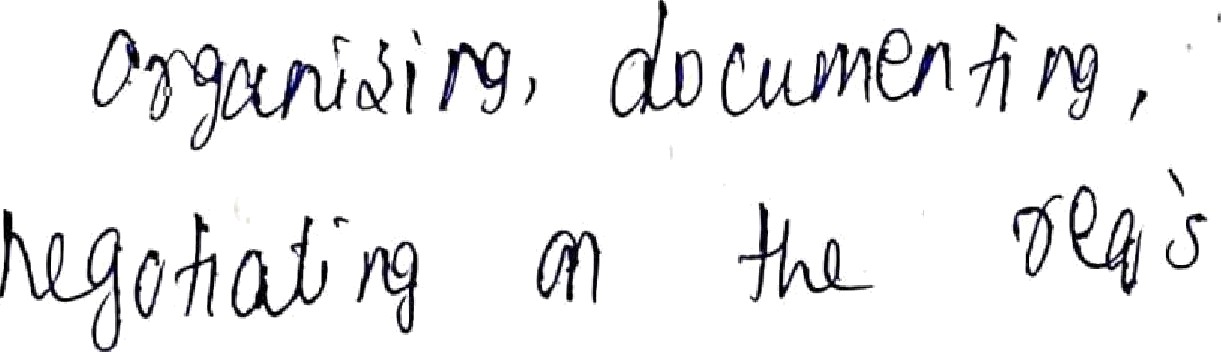 organising, documenting,
negotiating on the req's